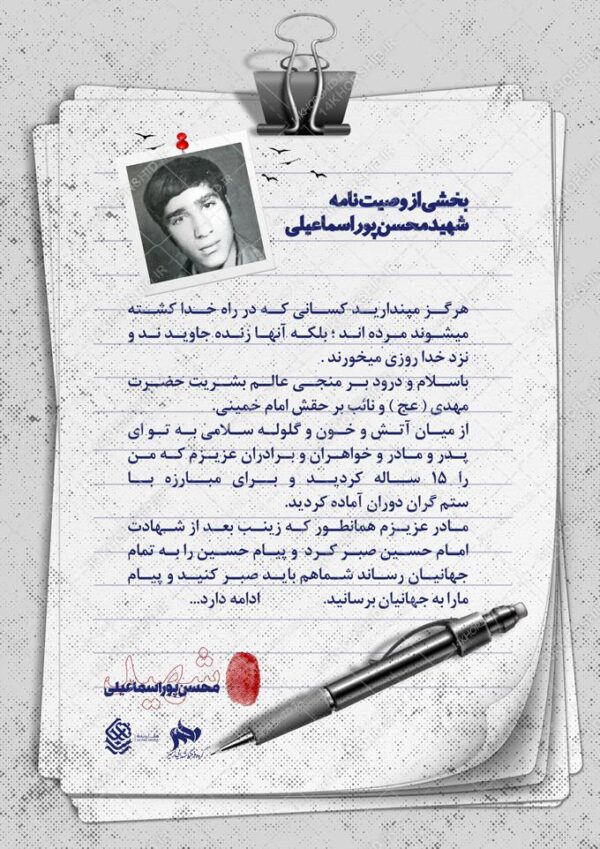 بخشی از وصیت‌نامه
شهید محسن پور اسماعیلی
هرگز مپندارید کسانی که در راه خدا کشته
میشوند مرده اند ؛ بلکه آنها زنده جاوید ند و
نزد خدا روزی میخورند .
باسلام و درود بر منجی عالم بشریت حضرت
مهدی ( عج ) و نائب بر حقش امام خمینی.
از میان آتش و خون و گلوله سلامی به تو ای
پدر و مادر و خواهران و برادران عزیزم که من
را ۱۵ ساله کردید و برای مبارزه با
ستم گران دوران آماده کردید.
مادر عزیزم همانطور که زینب بعد از شهادت
امام حسین صبر کرد و پیام حسین را به تمام
جهانیان رساند شماهم باید صبر کنید و پیام
مارا به جهانیان برسانید. ادامه دارد...
شهید
محسن پور اسماعیلی